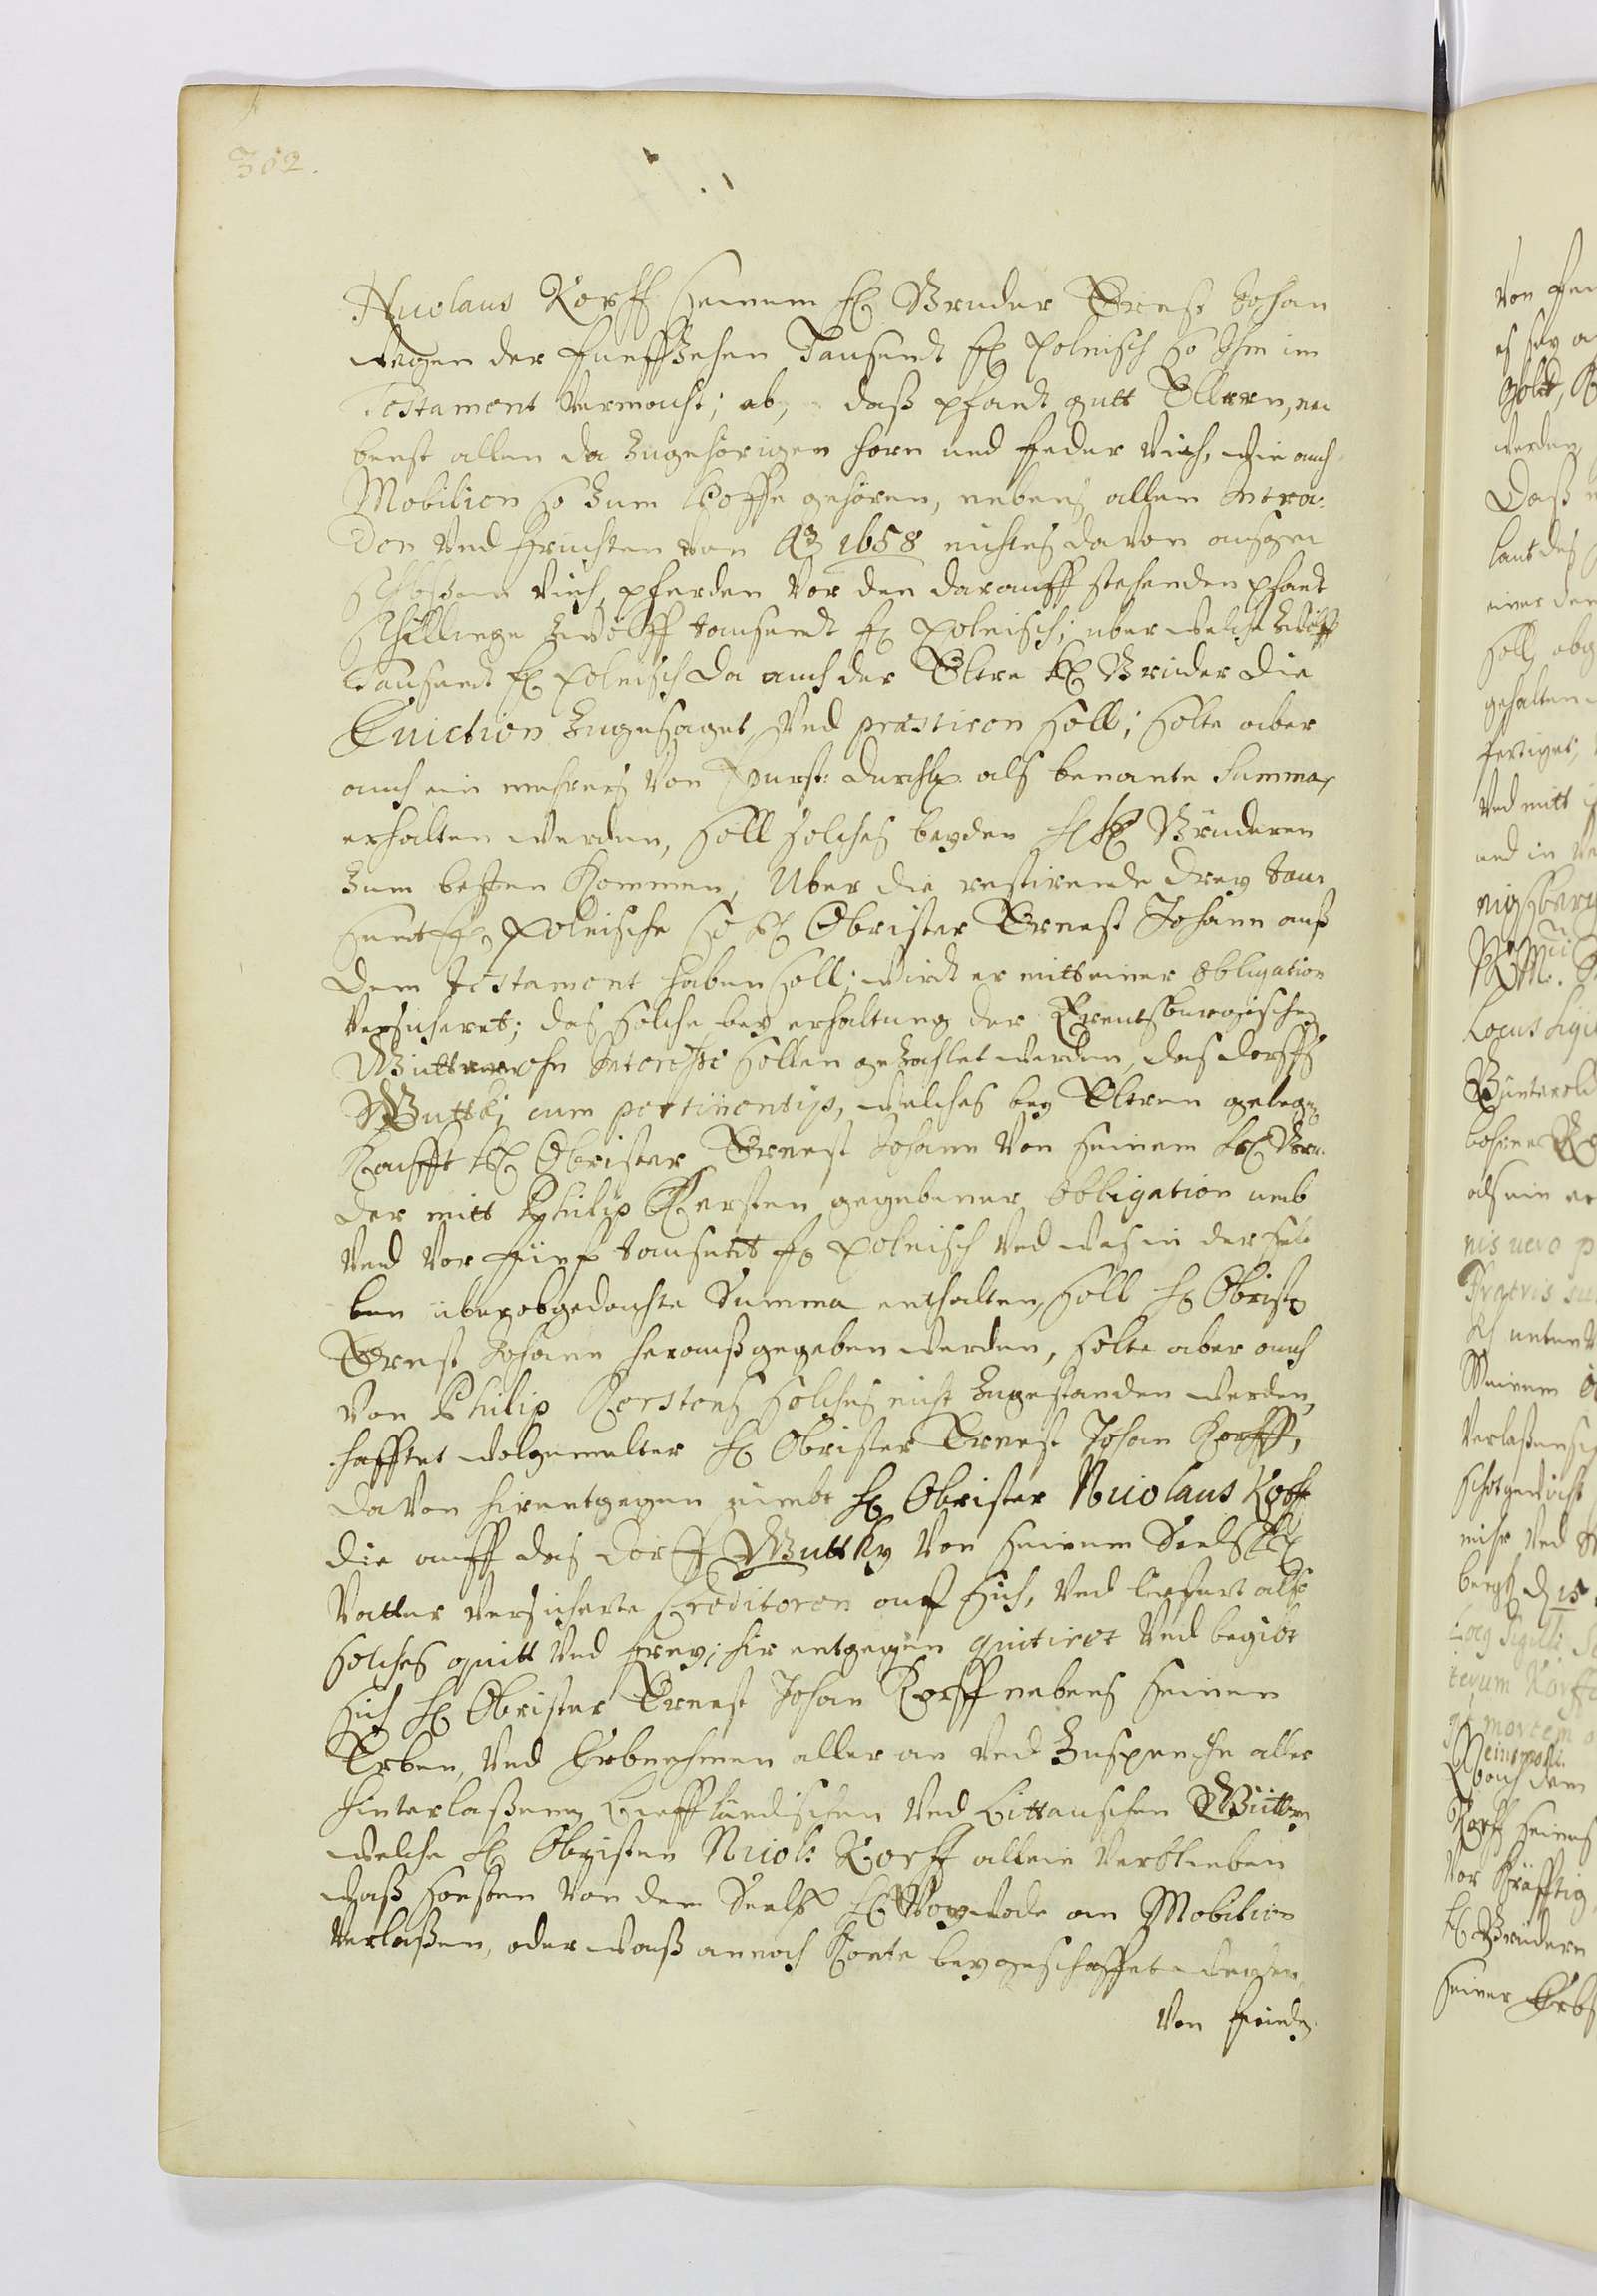 302.
Nicolaus Korff seinem H. Bruder Ernst Johan
wegen der funffzehen Tausendt fl. Polnisch so Ihm im
Testament vermacht; ab, daß pfandt gutt Elleren, ne¬
benst allen da zugehörigen horn und feder Vieh, wie auch
Mobilien so zum Hoffe gehören, nebenß allen Intra¬
den und fruchten von Ao 1658 nichteß davon ausge¬
schlossen Vieh, pferden vor den darauff stehenden pfandt
schillinge zwölff tausendt fl. polnisch; uber welche zwölff
Tausendt fl. polnisch da auch der Eltere H. Bruder die
Eviction zugesaget und præstiren soll; solte aber
auch ein mehrers von Furst. durchl. als benante Summa
erhalten werden, soll solches beyden H. H. Brüderen
zum besten Kommen, Uber die restirende drey tau¬
sendt fl. Polnische so H. Obrister Ernest Johann auß
dem Testament haben soll; wirdt er mitt einer Obligation
versichert; daß solche bey erhaltung der Kreutzburgischen
Gütter ohn Interesse sollen gezahlet werden, das dorff
Guttki cum pertinentijs, welches bey Elleren gelegen
Kaufft H. Obrister Ernest Johann von seinem H. Bru¬
der mitt Philip Kersten gegebener Obligation umb
und vor fünf tausendt fl. polnisch und was in dersel¬
ben über obgedachte Summa enthalten, soll H. Obrist.
Ernest Johann heraußgegeben werden, solte aber auch
von Philip Kerstens solches nicht zugestanden werden,
hafftet wolgemelter H. Obrister Ernest Johan Korff,
davon hirentgegen nimbt H. Obrister Nicolaus Korff
die auff das dorff Guttky von seinem Seel. H.
Vatter versicherte Creditoren auf sich, und liefert also
solches quitt und frey; hir entgegen quitiret und begibt
sich H. Obrister Ernest Johan Korff nebens seinen
Erben, und Erbnehmen aller an und Zusprüche aller
hinterlaßenen Liefflandischen und Littauschen Gütter
welche H. Obristen Nicol: Korff allein verblieben
waß sonsten von dem Seel. H. Woywode an Mobilien
verlaßen, oder waß annoch Konte beygeschaffet werden
Von feinden